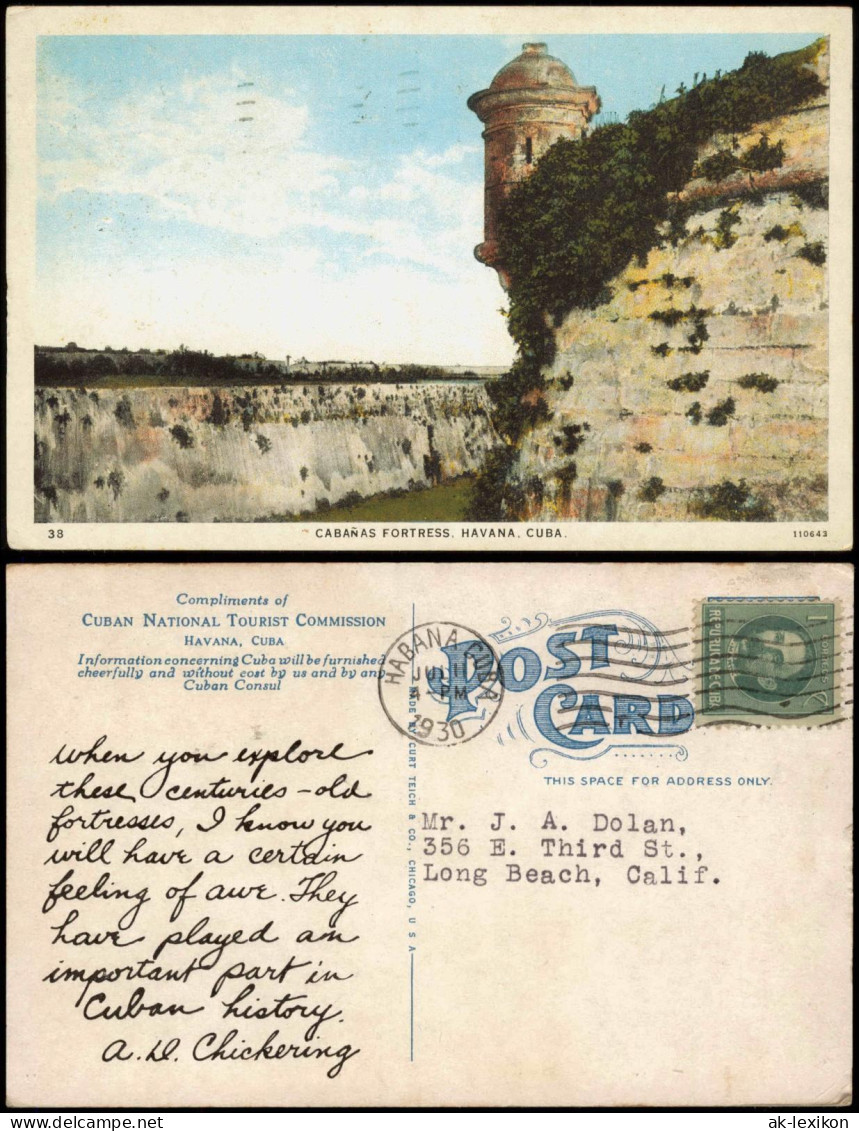 38
CABAÑAS FORTRESS, HAVANA, CUBA.
110643
Compliments of
CUBAN NATIONAL TOURIST COMMISSION
HAVANA, CUBA
Information concerning Cuba will be furnished
cheerfully and without cost by us and by any
Cuban Consul
HABANA CUBA
PM
1930
POST
CARD
THIS SPACE FOR ADDRESS ONLY.
REPUBLICA DE CUBA
1
MADE BY CURT TEICH & CO., CHICAGO, U S A
When you explore
these centuries-old
fortresses, I know you
will have a certain
feeling of awe. They
have played an
important part in
Cuban history.
A. D. Chickering
Mr. J. A. Dolan,
356 E. Third St.,
Long Beach, Calif.
© ak-lexikon
ak-lexikon